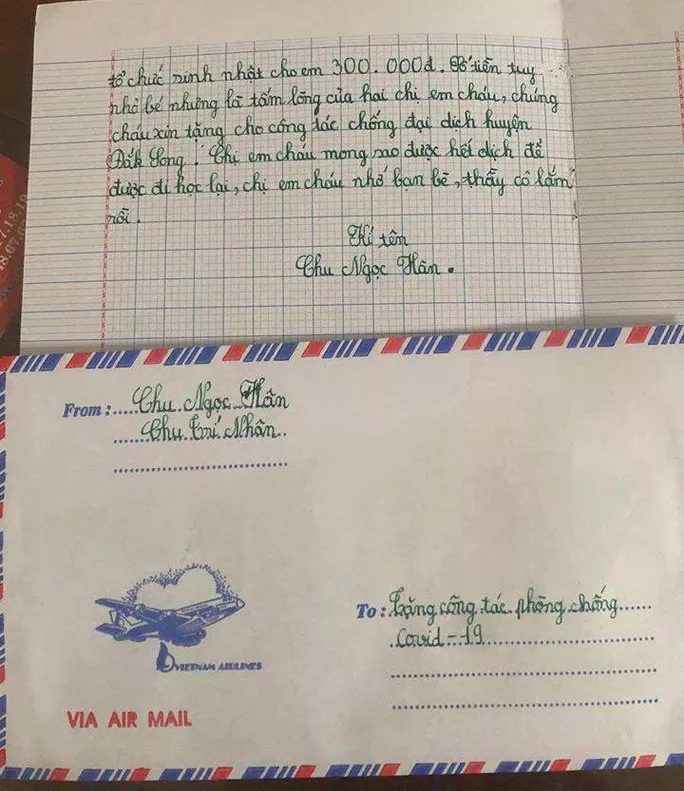 tổ chức sinh nhật cho em 300.000đ. Số tiền tuy
nhỏ bé nhưng là tấm lòng của hai chị em cháu, chúng
cháu xin tặng cho công tác chống đại dịch huyện
Đắk Song. Chị em cháu mong sao được hết dịch để
được đi học lại, chị em cháu nhớ bạn bè, thầy cô lắm
rồi.
Kí tên
Chu Ngọc Hân.
From: Chu Ngọc Hân
Chu Trí Nhân
To: Tặng công tác phòng chống
Covid-19
VIETNAM AIRLINES
VIA AIR MAIL